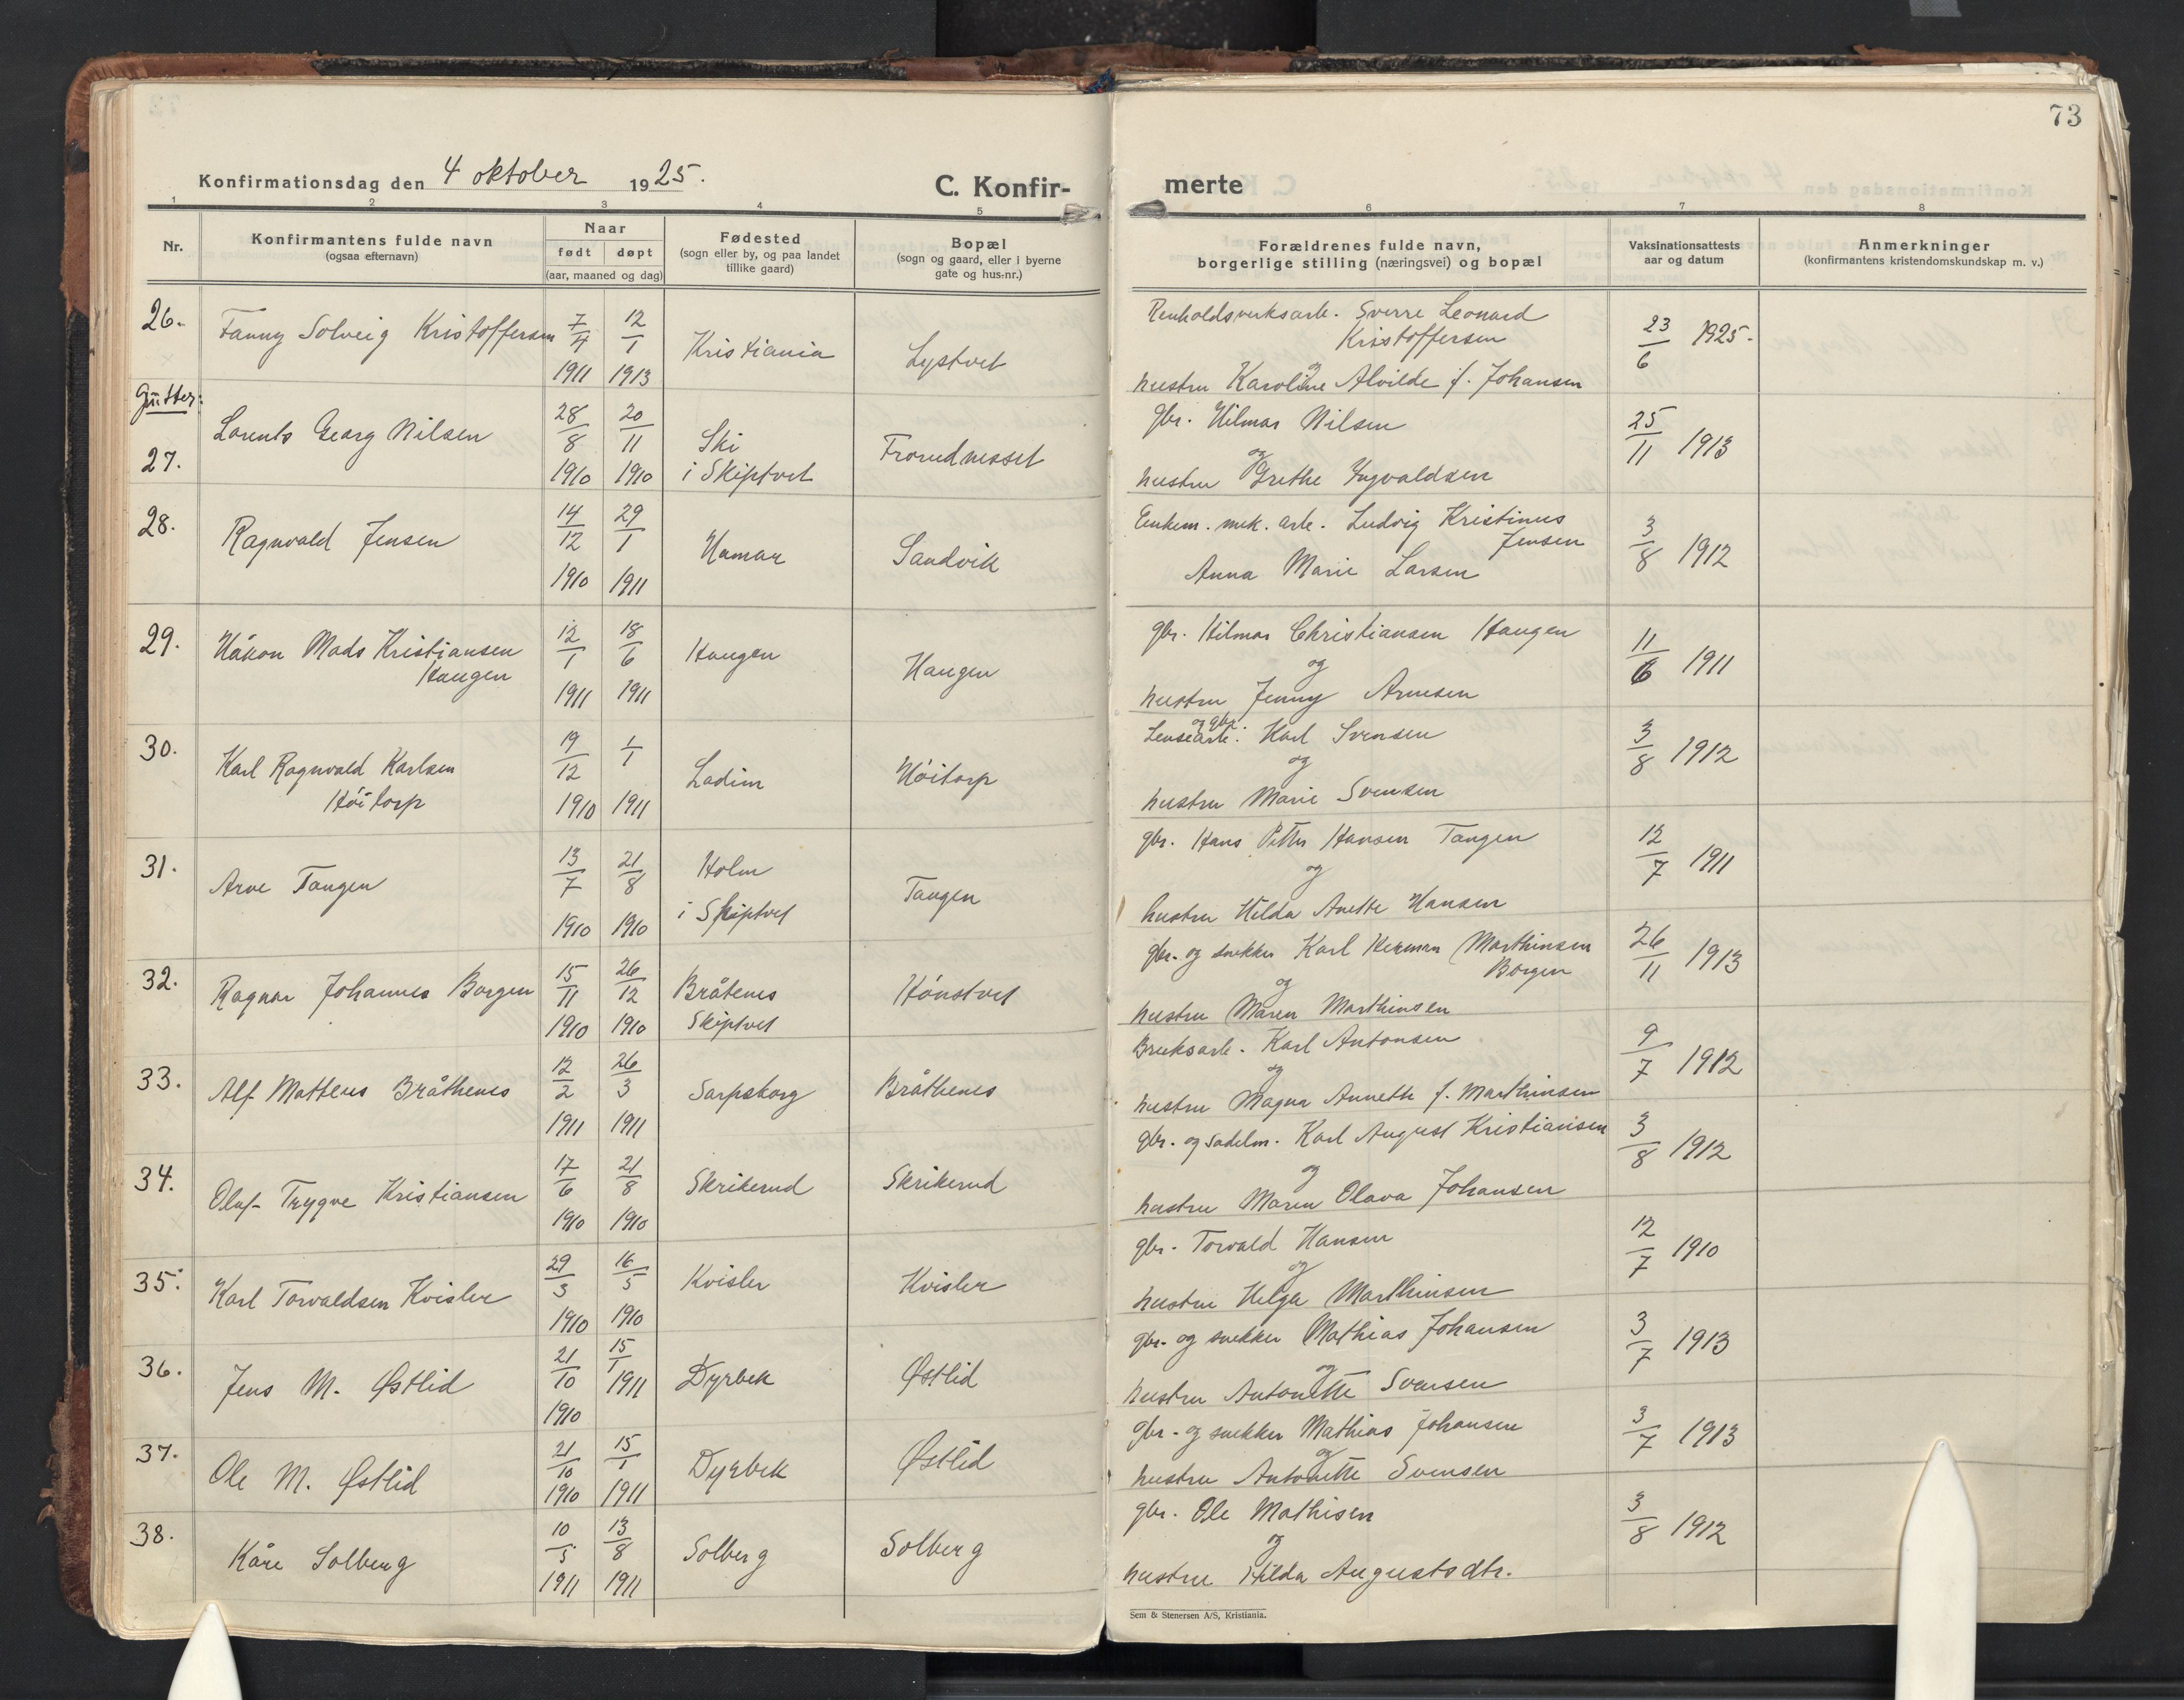 73
Konfirmationsdag den 4 oktober 1925.
C. Konfir-
merte
1 2 3 4 5 6 7 8
Nr.
Konfirmantens fulde navn
(ogsaa efternavn)
Naar
født døpt
(aar, maaned og dag)
Fødested
(sogn eller by, og paa landet
tillike gaard)
Bopæl
(sogn og gaard, eller i byerne
gate og hus-nr.)
Forældrenes fulde navn,
borgerlige stilling (næringsvei) og bopæl
Vaksinationsattests
aar og datum
Anmerkninger
(konfirmantens kristendomskundskap m. v.)
26. Fanny Solveig Kristoffersen 7/4 1911 12/1 1913 Kristiania Lystvet
Renholdsverksarb. Sverre Leonard
Kristoffersen
og
hustru Karoline Alvilde f. Johansen
23/6 1925.
Gutter:
27. Lorents Georg Nilsen 28/8 1910 20/11 1910 Ski
i Skiptvet
Frorudnesset
gbr. Hilmar Nilsen
og
hustru Grethe Yngvaldsen
25/11 1913
28. Ragnvald Jensen 14/12 1910 29/1 1911 Hamar Sandvik
Enkem. mek. arb. Ludvig Kristinus
Jensen
Anna Marie Larsen
3/8 1912
29. Håkon Mads Kristiansen
Haugen
12/1 1911 18/6 1911 Haugen Haugen
gbr. Hilmar Christiansen Haugen
og
hustru Jenny Arnesen
11/6 1911
30. Karl Ragnvald Karlsen
Höitorp
19/12 1910 1/1 1911 Ladim Höitorp
og gbr.
Lensearb. Karl Svensen
og
hustru Marie Svensen
3/8 1912
31. Arve Tangen 13/7 1910 21/8 1910 Holm
i Skiptvet
Tangen
gbr. Hans Petter Hansen Tangen
og
hustru Hilda Anette Hansen
12/7 1911
32. Ragnar Johannes Borgen 15/11 1910 26/12 1910 Bråtenes
Skiptvet
Hönstvet
gbr. og snekker Karl Herman Marthinsen
Borgen
og
hustru Maren Marthinsen
26/11 1913
33. Alf Matteus Bråthenes 12/2 1911 26/3 1911 Sarpsborg Bråthenes
Bruksarb. Karl Antonsen
og
hustru Magna Annette f. Marthinsen
9/7 1912
34. Oluf Trygve Kristiansen 17/6 1910 21/8 1910 Skrikerud Skrikerud
gbr. og sadelm. Karl August Kristiansen
og
hustru Maren Olava Johansen
3/8 1912
35. Karl Torvaldsen Kvisler 29/3 1910 16/5 1910 Kvisler Kvisler
gbr. Torvald Hansen
og
hustru Helga Marthinsen
12/7 1910
36. Jens M. Østlid 21/10 1910 15/1 1911 Dyrbek Østlid
gbr. og snekker Mathias Johansen
og
hustru Antonette Svensen
3/7 1913
37. Ole M. Østlid 21/10 1910 15/1 1911 Dyrbek Østlid
gbr. og snekker Mathias Johansen
og
hustru Antonette Svensen
3/7 1913
38. Kåre Solberg 10/5 1911 13/8 1911 Solberg Solberg
gbr. Ole Mathisen
og
hustru Hilda Augustsdtr.
3/8 1912
Sem & Stenersen A/S, Kristiania.